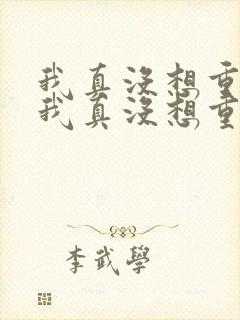 我真没想重
我真没想重
李武學